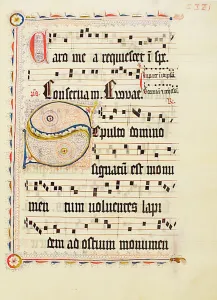 Caro mea requiescet i spe
Conserva m.
Sepulto domino
signatu est monu
men tum voluentes lapi
dem ad ostium monumen